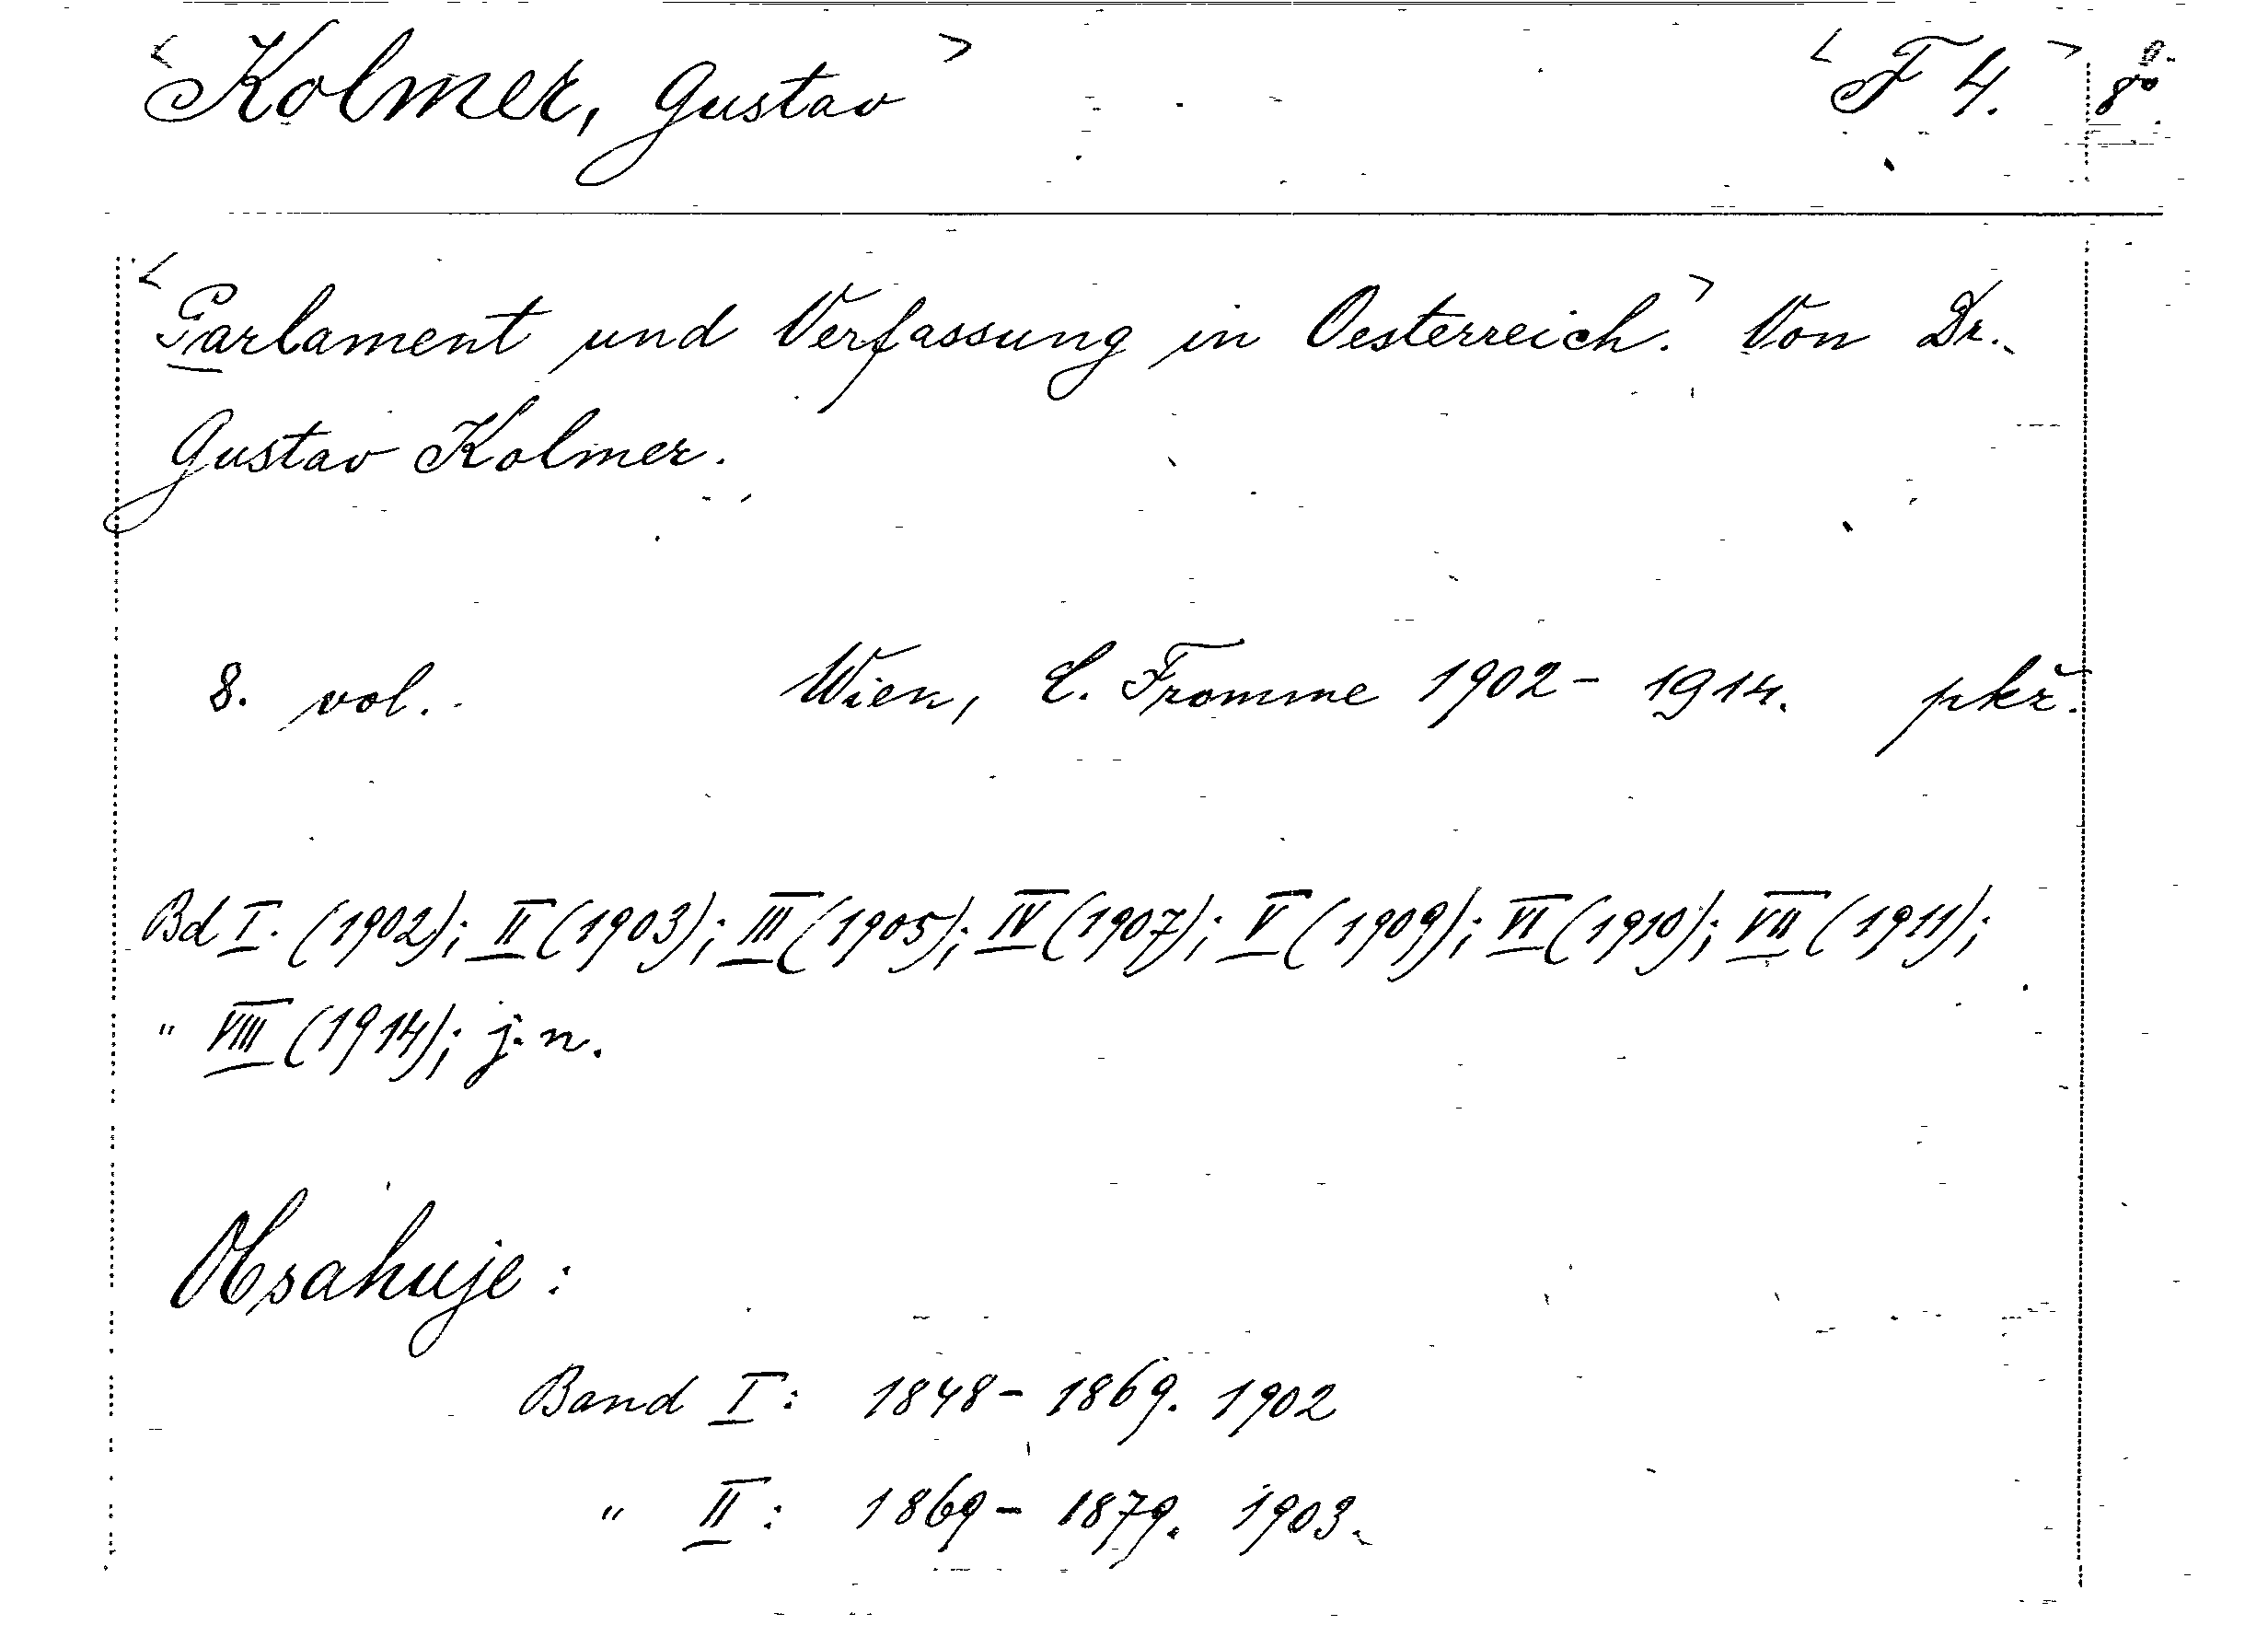 <Kolmer, Gustav> <F 4.> 8°
<Parlament und Verfassung in Oesterreich.> Von Dr.
Gustav Kolmer.
8. vol. Wien, C. Fromme 1902 - 1914. pkř.
Bd I. (1902); II (1903); III (1905); IV (1907); V (1909); VI (1910); VII (1911);
" VIII (1914); j. n.
Obsahuje:
Band I: 1848 - 1869. 1902
" II: 1869 - 1879. 1903.